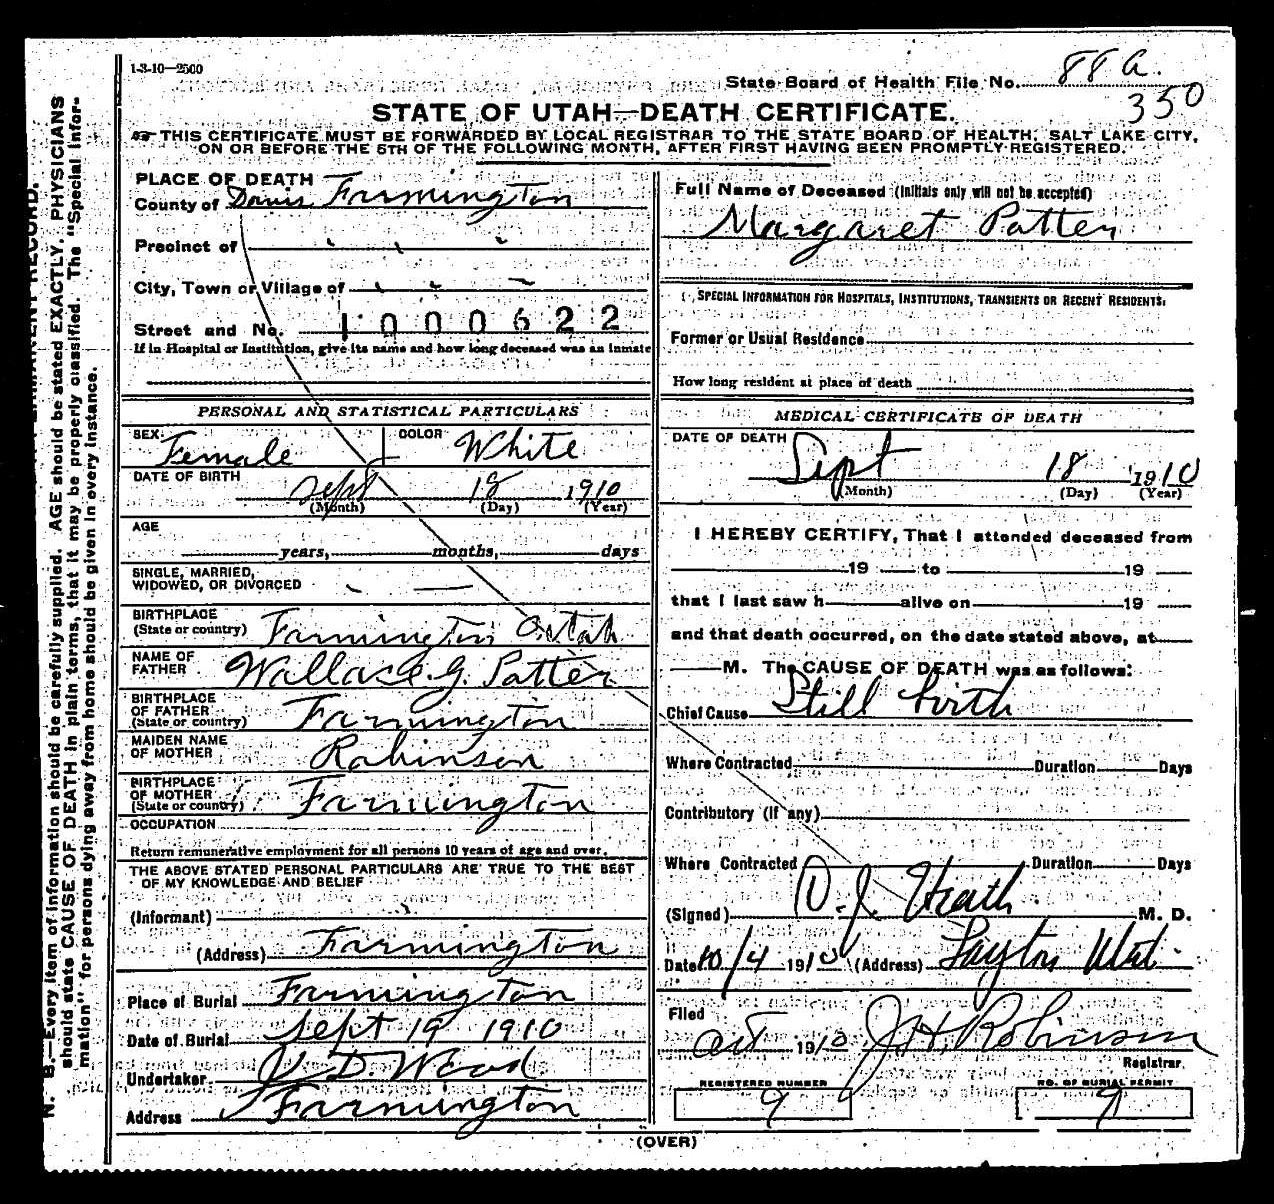 1-3-10—2500
State Board of Health File No. 88 a.
350
STATE OF UTAH—DEATH CERTIFICATE.
THIS CERTIFICATE MUST BE FORWARDED BY LOCAL REGISTRAR TO THE STATE BOARD OF HEALTH, SALT LAKE CITY,
ON OR BEFORE THE 5TH OF THE FOLLOWING MONTH, AFTER FIRST HAVING BEEN PROMPTLY REGISTERED.
PLACE OF DEATH
County of Davis Farmington
Precinct of
City, Town or Village of
Street and No. 1000622
If in Hospital or Institution, give its name and how long deceased was an inmate
PERSONAL AND STATISTICAL PARTICULARS
SEX Female COLOR White
DATE OF BIRTH
Sept 18 1910
(Month) (Day) (Year)
AGE
years, months, days
SINGLE, MARRIED,
WIDOWED, OR DIVORCED
BIRTHPLACE
(State or country) Farmington Utah
NAME OF
FATHER Wallace G. Patten
BIRTHPLACE
OF FATHER
(State or country) Farmington
MAIDEN NAME
OF MOTHER Robinson
BIRTHPLACE
OF MOTHER
(State or country) Farmington
OCCUPATION
Return remunerative employment for all persons 10 years of age and over.
THE ABOVE STATED PERSONAL PARTICULARS ARE TRUE TO THE BEST
OF MY KNOWLEDGE AND BELIEF
(Informant)
(Address) Farmington
Place of Burial Farmington
Date of Burial Sept 19 1910
Undertaker D. Wood
Address Farmington
Full Name of Deceased (Initials only will not be accepted)
Margaret Patten
SPECIAL INFORMATION FOR HOSPITALS, INSTITUTIONS, TRANSIENTS OR RECENT RESIDENTS.
Former or Usual Residence
How long resident at place of death
MEDICAL CERTIFICATE OF DEATH
DATE OF DEATH
Sept 18 1910
(Month) (Day) (Year)
I HEREBY CERTIFY, That I attended deceased from
19 to 19
that I last saw h alive on 19
and that death occurred, on the date stated above, at
M. The CAUSE OF DEATH was as follows:
Chief Cause Still birth
Where Contracted Duration Days
Contributory (If any)
Where Contracted Duration Days
(Signed) D. J. Heath M. D.
Date 10/4 1910 (Address) Layton Utah
Filed
Oct 1910 J. H. Robinson
Registrar
REGISTERED NUMBER NO. OF BURIAL PERMIT
9 9
(OVER)
N. B.—Every item of information should be carefully supplied. AGE should be stated EXACTLY. PHYSICIANS
should state CAUSE OF DEATH in plain terms, that it may be properly classified. The "Special Infor-
mation" for persons dying away from home should be given in every instance.